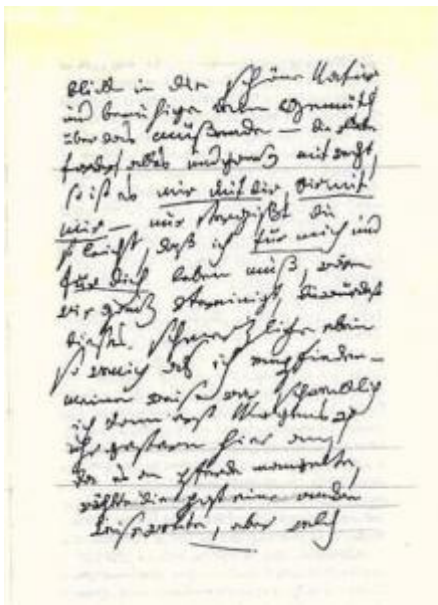 Blick in die schöne Natur
und beruhige dein Gemüth
über das müßende – die Liebe
fordert alles und ganz mit recht,
so ist es mir mit dir, dir mit
mir – nur vergißt du
so leicht, daß ich für mich und
für dich leben muß, wären
wir ganz vereinigt, du würdest
dieses schmerzliche eben
so wenig als ich empfinden –
meine Reise war schrecklich
ich kam erst Morgens 4
uhr gestern hier an,
da es an Pferde mangelte,
wählte die Post eine andre
Reiseroute, aber welch